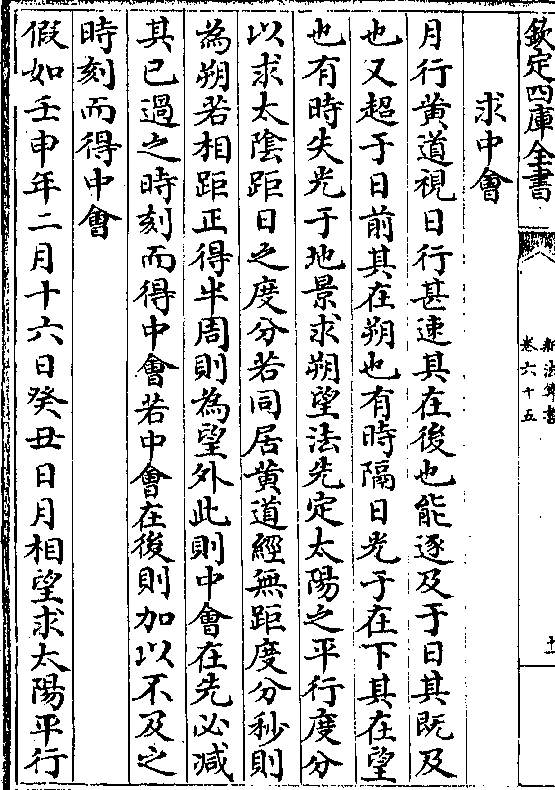 欽定四庫全書
新法算書
卷六十五
求中會
月行黄道視日行甚速其在後也能逐及于日其既及
也又超于日前其在朔也有時隔日光于在下其在望
也有時失光于地景求朔望法先定太陽之平行度分
以求太陰距日之度分若同居黄道經無距度分秒則
為朔若相距正得半周則為望外此則中會在先必减
其已過之時刻而得中會若中會在後則加以不及之
時刻而得中會
假如壬申年二月十六日癸丑日月相望求太陽平行